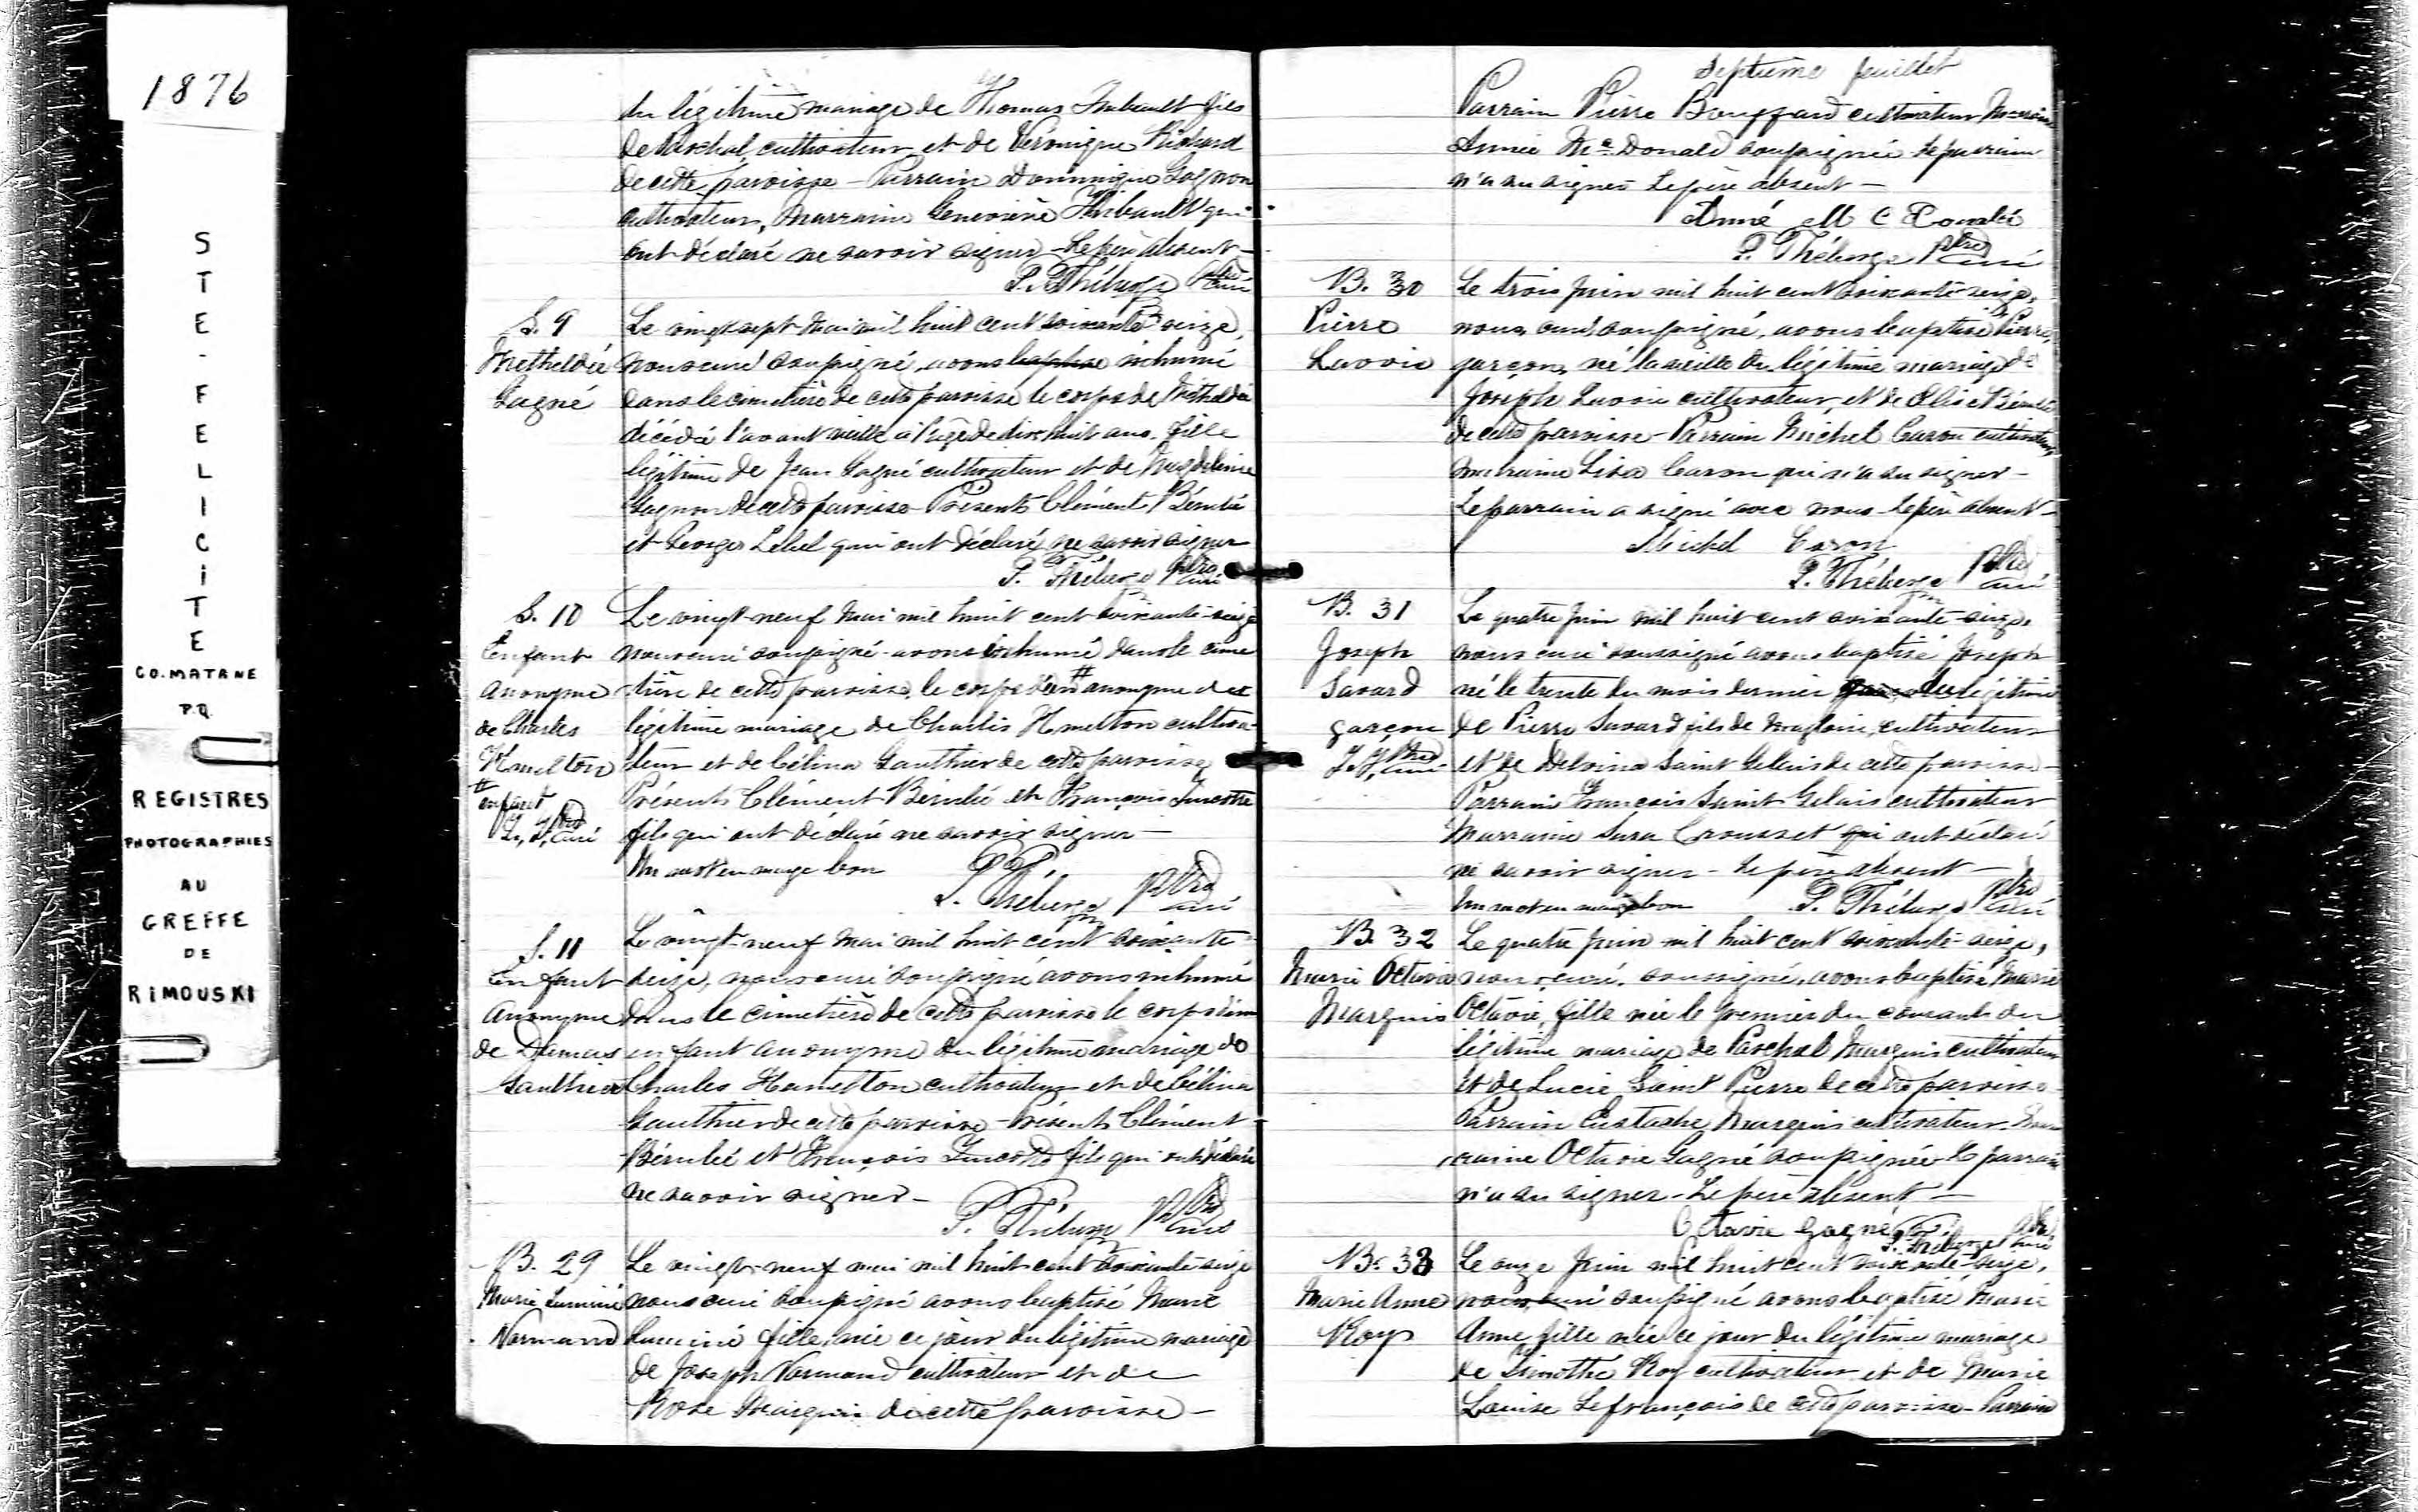 1876
STE-FELICITE
CO. MATANE
P.Q.
REGISTRES
PHOTOGRAPHIES
AU
GREFFE
DE
RIMOUSKI
du légitime mariage de Thomas Thibault fils
de Paschal, cultivateur et de Véronique Richard
de cette paroisse - Parrain Dominique Gagnon
cultivateur, Marraine Geneviève Thibault qui
ont déclaré ne savoir signer - Le père absent -
P. Théberge Ptre curé
S. 9
Metheldée
Gagné
Le vingt sept Mai mil huit cent soixante seize,
nous curé soussigné, avons baptisé inhumé
dans le cimetière de cette paroisse le corps de Metheldée
décédée l'avant veille à l'age de dix huit ans, fille
légitime de Jean Gagné cultivateur et de Magdeleine
Gagnon de cette paroisse - Présents Clément Bérubé
et Georges Lebel qui ont déclaré ne savoir signer
P. Théberge Ptre curé
S. 10
Enfant
anonyme
de Charles
Hamelton
# enfant
P. T. Ptre curé
Le vingt-neuf Mai mil huit cent soixante-seize
nous curé soussigné avons inhumé dans le cime
tière de cette paroisse, le corps d'un # anonyme du
légitime mariage de Charles Hamelton cultiva-
teur et de Célina Gauthier de cette paroisse
Présents Clément Bérubé et François
fils qui ont déclaré ne savoir signer -
Un mot en marge bon
P. Théberge Ptre curé
S. 11
Enfant
Anonyme
de Damas
Gauthier
Le vingt-neuf Mai mil huit cent soixante-
seize, nous curé soussigné avons inhumé
dans le cimetière de cette paroisse le corps d'un
enfant anonyme du légitime mariage de
Charles Hamelton cultivateur et de Célina
Gauthier de cette paroisse - Présents Clément
Bérubé et François fils qui ont déclaré
ne savoir signer -
P. Théberge Ptre curé
B. 29
Marie
Normand
Le vingt-neuf mai mil huit cent soixante-seize
nous curé soussigné avons baptisé Marie
fille, née ce jour du légitime mariage
de Joseph Normand cultivateur et de
Rose Marquis de cette paroisse -
Septième feuillet
Parrain Pierre Bouffard cultivateur Marraine
Annie McDonald soussignée le parrain
n'a su signer Le père absent -
Anné M C Donald
P. Théberge Ptre curé
B. 30
Pierre
Lavoie
Le trois Juin mil huit cent soixante-seize,
nous, curé soussigné, avons baptisé Pierre,
garçon, né la veille du légitime mariage de
Joseph Lavoie cultivateur, et de Bérubé
de cette paroisse - Parrain Michel Caron cultivateur
marraine Lisa Caron qui n'a su signer -
Le parrain a signé avec nous - Le père absent -
Michel Caron
P. Théberge Ptre curé
B. 31
Joseph
Savard
garçon
P. T. Ptre curé
Le quatre Juin mil huit cent soixante-seize,
nous curé soussigné avons baptisé Joseph
né le trente du mois dernier du légitime
de Pierre Savard fils de Magloire, cultivateur
et de Delvina Saint Gelais de cette paroisse -
Parrain François Saint Gelais cultivateur
Marraine Sara Crousset qui ont déclaré
ne savoir signer - Le père absent -
Un mot en marge bon
P. Théberge Ptre curé
B. 32
Marie Octavie
Marquis
Le quatre Juin mil huit cent soixante-seize,
nous, curé, soussigné, avons baptisé Marie
Octavie, fille née le premier du courant du
légitime mariage de Paschal Marquis cultivateur
et de Lucie Saint Pierre de cette paroisse
Parrain Eustache Marquis cultivateur Mar
raine Octavie Gagné soussignée le parrain
n'a su signer - Le père absent -
Octavie Gagné
P. Théberge Ptre curé
B. 33
Marie Anne
Roy
Le onze Juin mil huit cent soixante-seize,
nous, curé soussigné avons baptisé Marie
Anne fille née ce jour du légitime mariage
de Timothé Roy cultivateur et de Marie
Louise Lefrançois de cette paroisse - Parrain